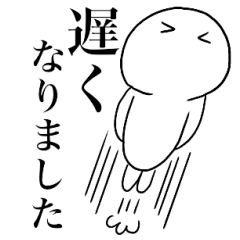 遅く
なりました